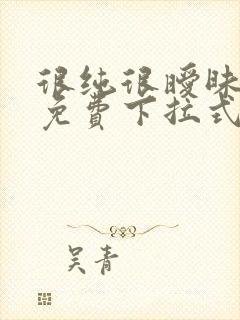 很纯很暧昧
免费下拉式
吴青